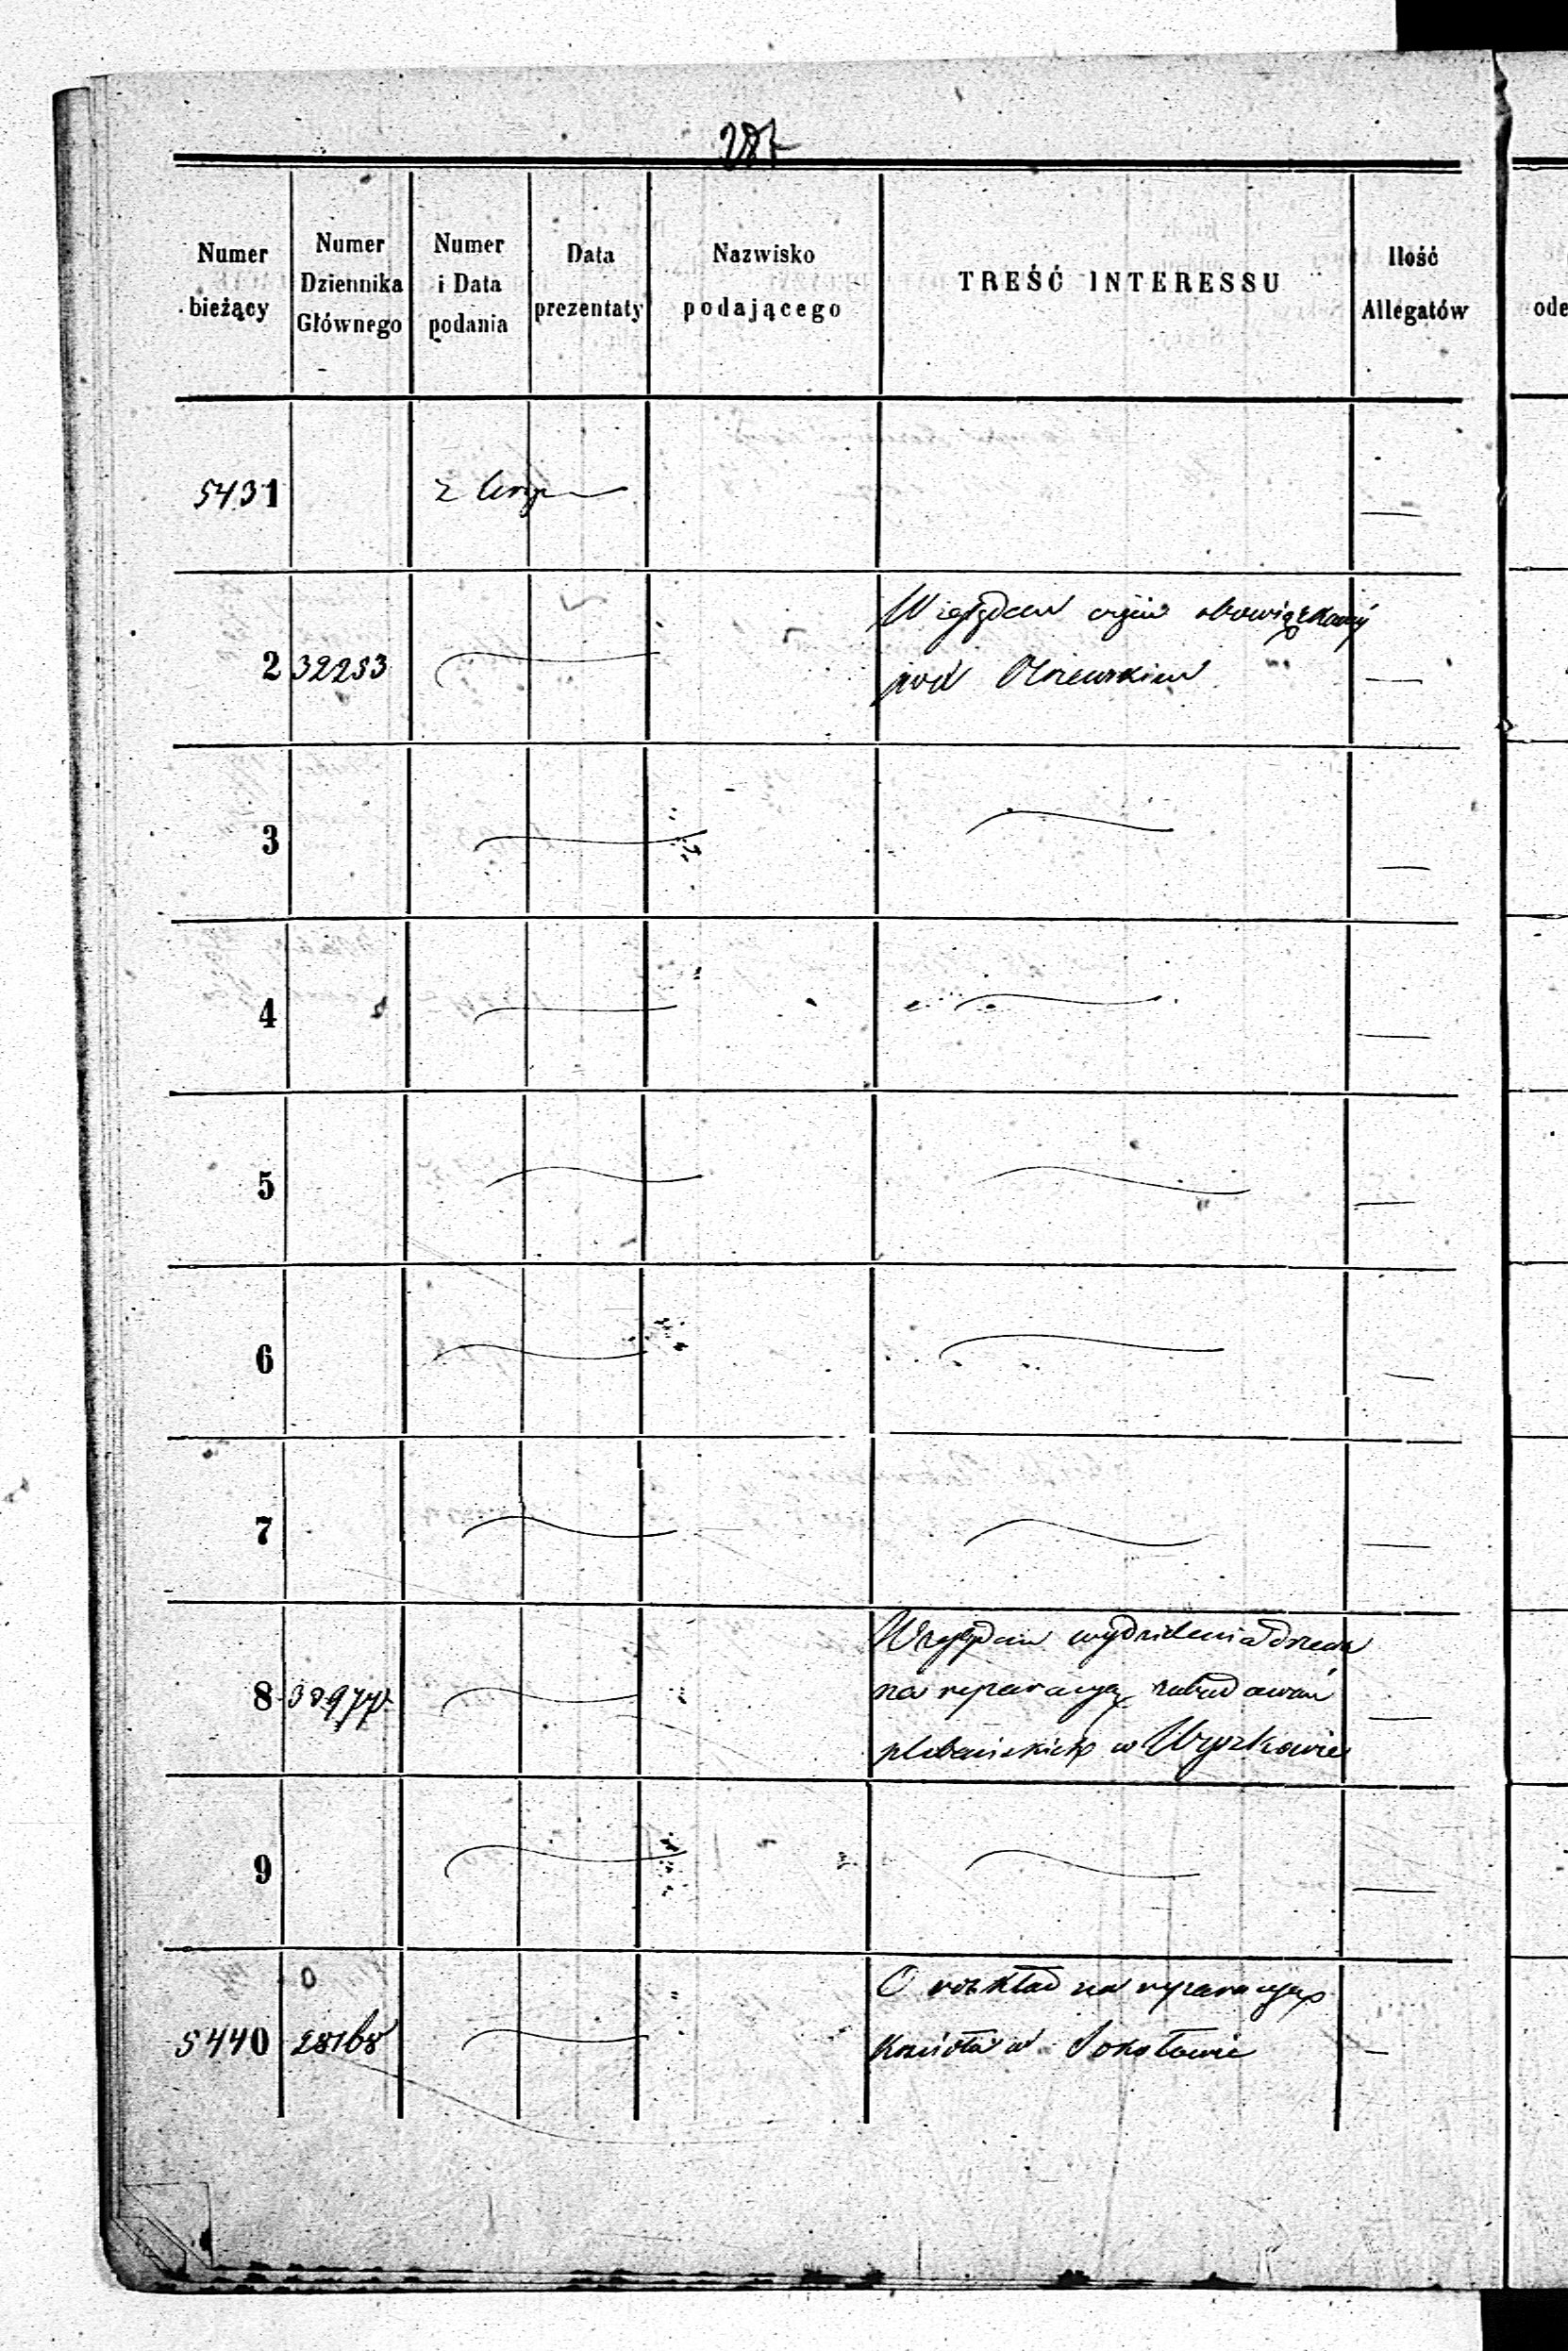 287
Numer bieżący
Numer Dziennika Głównego
Numer i Data podania
Data prezentaty
Nazwisko podającego
TREŚĆ INTERESSU
Ilość Allegatów
ode
5431
2
2 32253
obowiązkowej
pod
3
4
5
6
7
8
Względem wydzielenia drzewa
na reparacyą zabudowań
plebańskich w Wyszkowie
9
O rozkład na reparacyą
5440 28168
Kościoła w Sokołowie